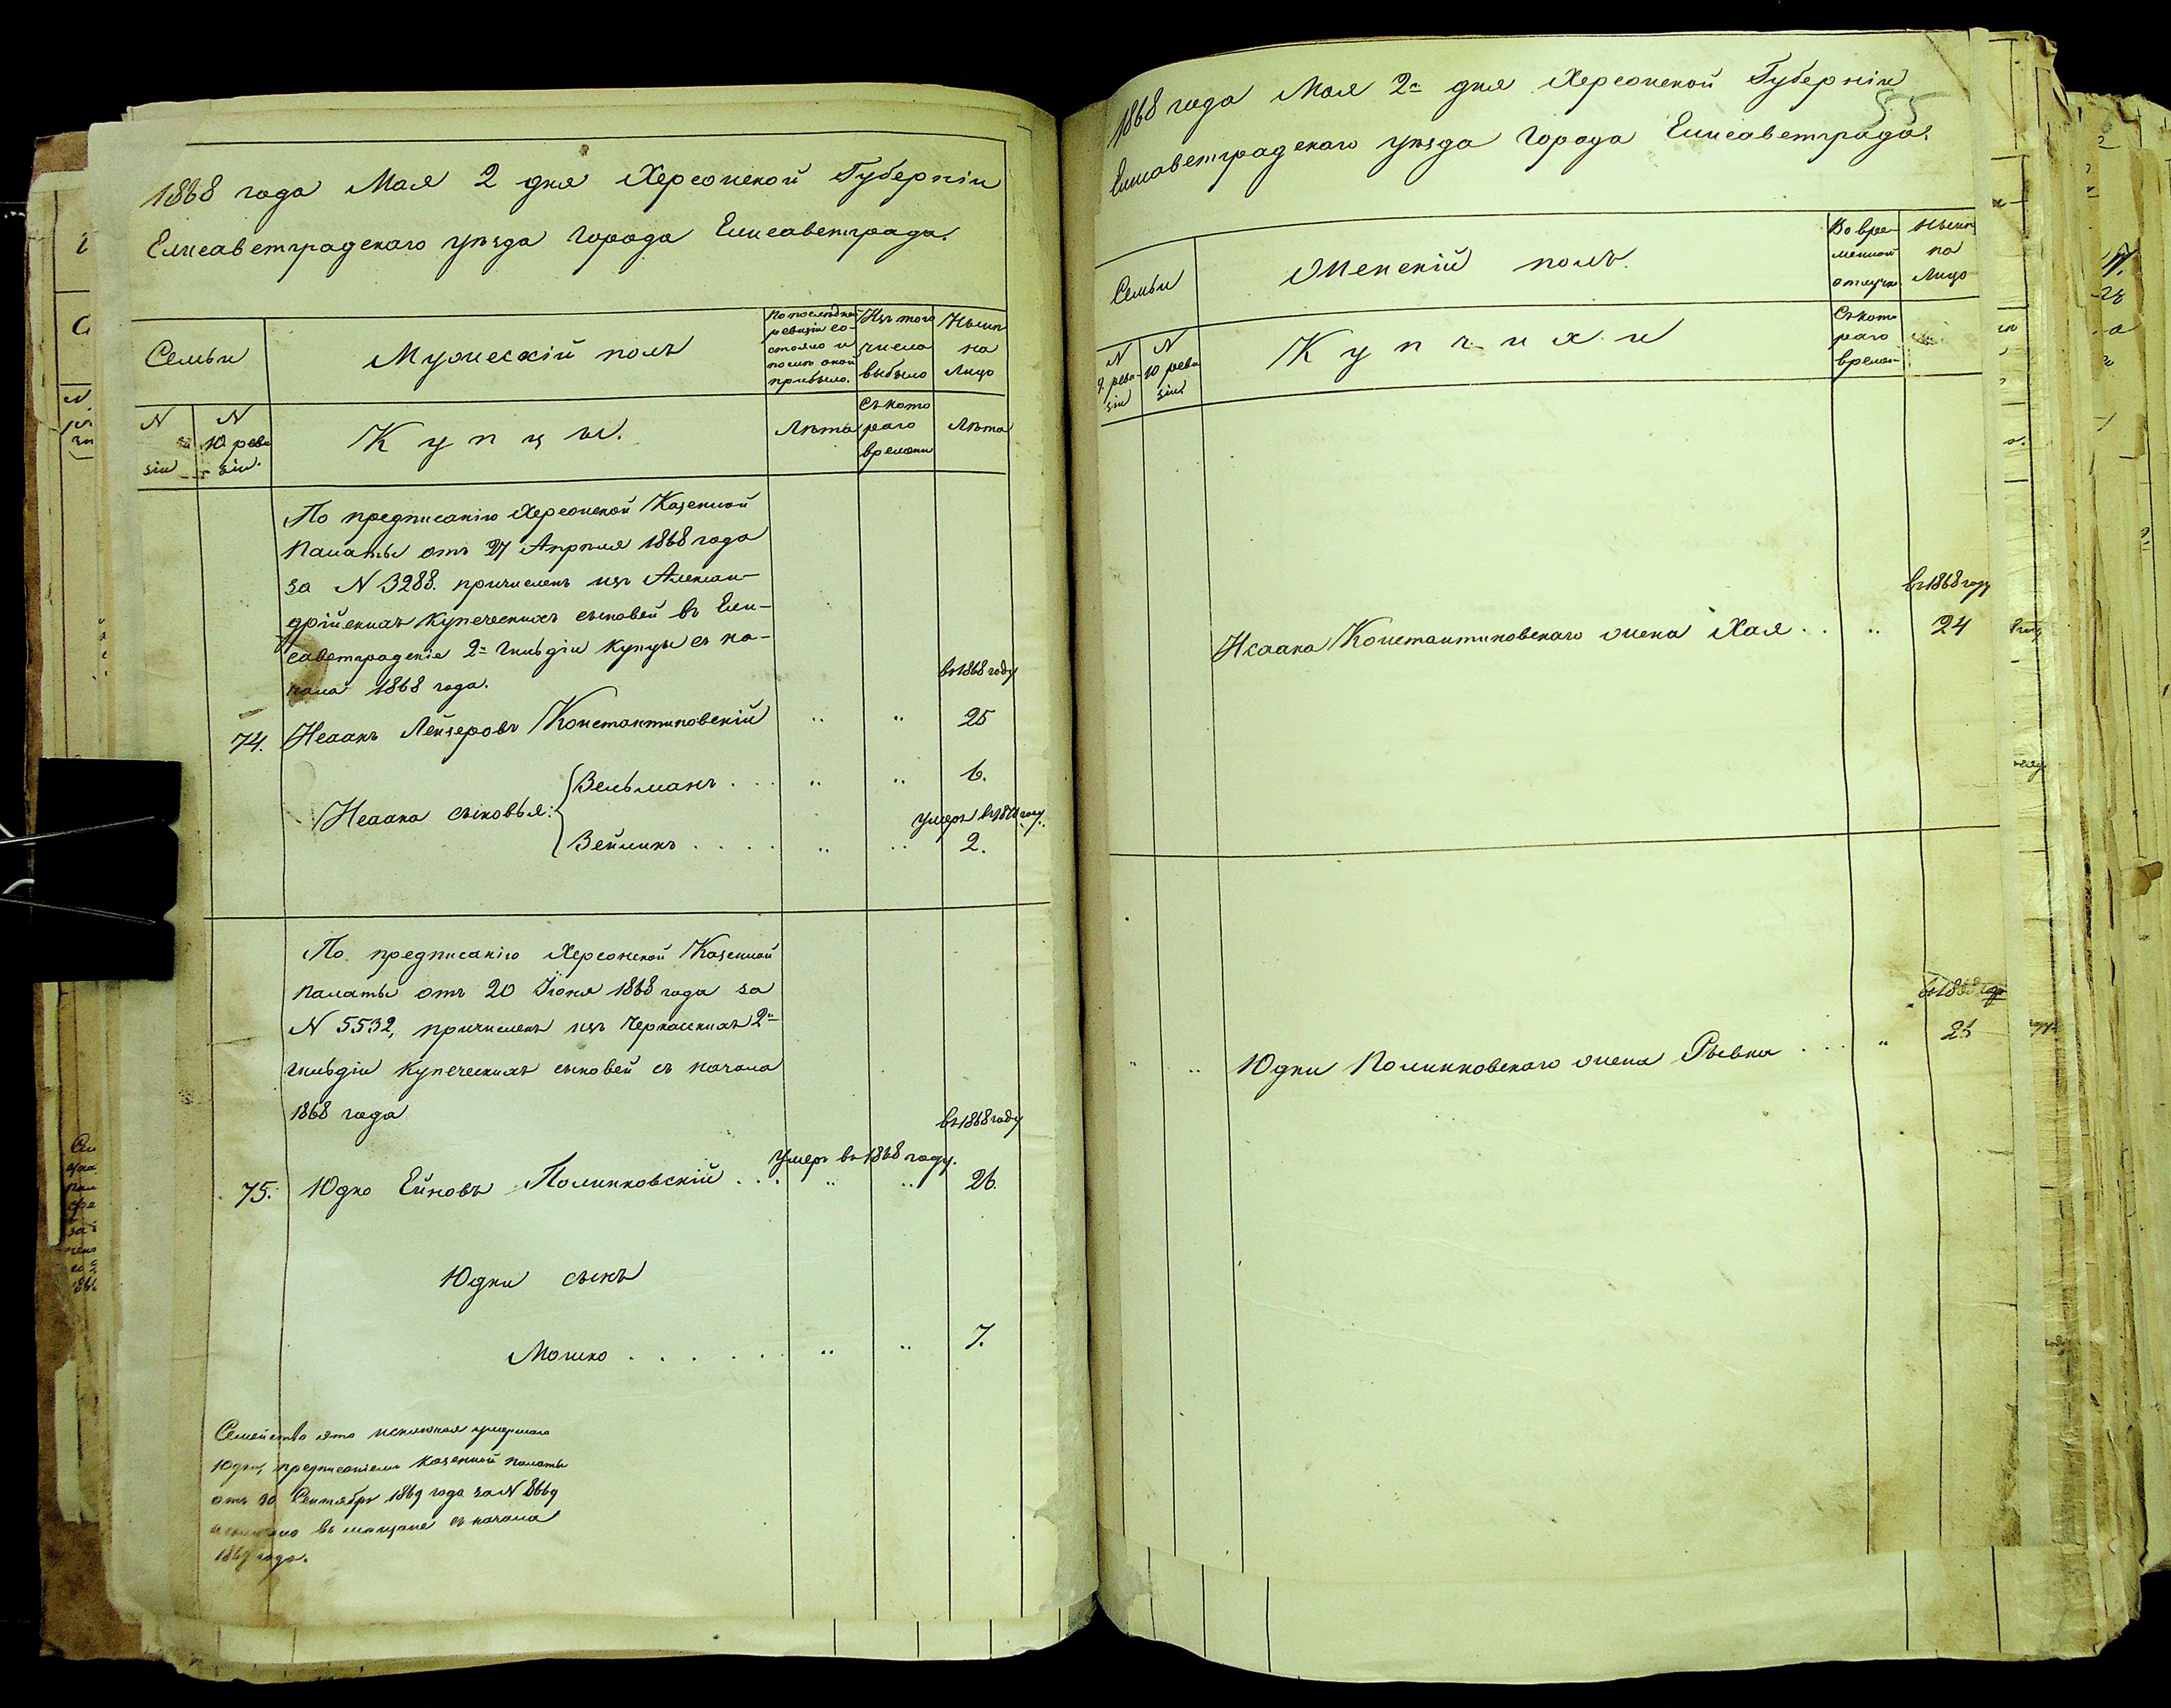 1868 года Мая 2 дня Херсонской Губернiи
Елисаветградскаго уѣзда города Елисаветграда.
Семьи
Мужескiй полъ
По послѣдней
ревизiи со-
стояло и
послѣ оной
прибыло.
Изъ того
числа
выбыло
Нынѣ
на
Лицо
N
зiи
N
10 реви
зiи.
Купцы.
Лѣта
Съ кото
раго
времени
Лѣта
По предписанiю Херсонской Казенной
Палаты отъ 27 Апрѣля 1868 года
за N 3288. причисленъ изъ Алексан-
дрiйскихъ купеческихъ сыновей въ Ели-
саветградскiе 2й гильдiи купцы съ на-
чала 1868 года.
въ 1868 году
74. Исаакъ Лейзеровъ Константиновскiй " " 25
Исаака сыновья:
Зельманъ . . . " " 6.
умеръ въ году.
Зейликъ . . . . " " 2.
По предписанiю Херсонской Казенной
Палаты отъ 20 Iюня 1868 года за
N 5532, причисленъ изъ Черкасскихъ 2й
гильдiи купеческихъ сыновей съ начала
1868 года
въ 1868 году
умеръ въ 1868 году.
75. Юдко Ейновъ Полинковскiй . . . " " 26.
Юдки сынъ
Мошко . . . . . . " " 7.
Семейство это исключая умершаго
Юдки, предписанiемъ Казенной Палаты
отъ 30 Сентября 1869 года за N 8669
въ мѣщане съ начала
1869 года.
55
1868 года Мая 2го дня Херсонской Губернiи
Елисаветградскаго уѣзда города Елисаветграда.
Семьи
Женскiй полъ.
Во вре-
менной
отлучкѣ
Нынѣ
на
Лицо
N
9. реви-
зiи
N
10 реви
зiи
Купчихи
Съ кото
раго
времен-
въ 1868 году
Исаака Константиновскаго жена Хая . . " 24
въ 1868 году
" " Юдки Полинковскаго жена Рывка . . . "